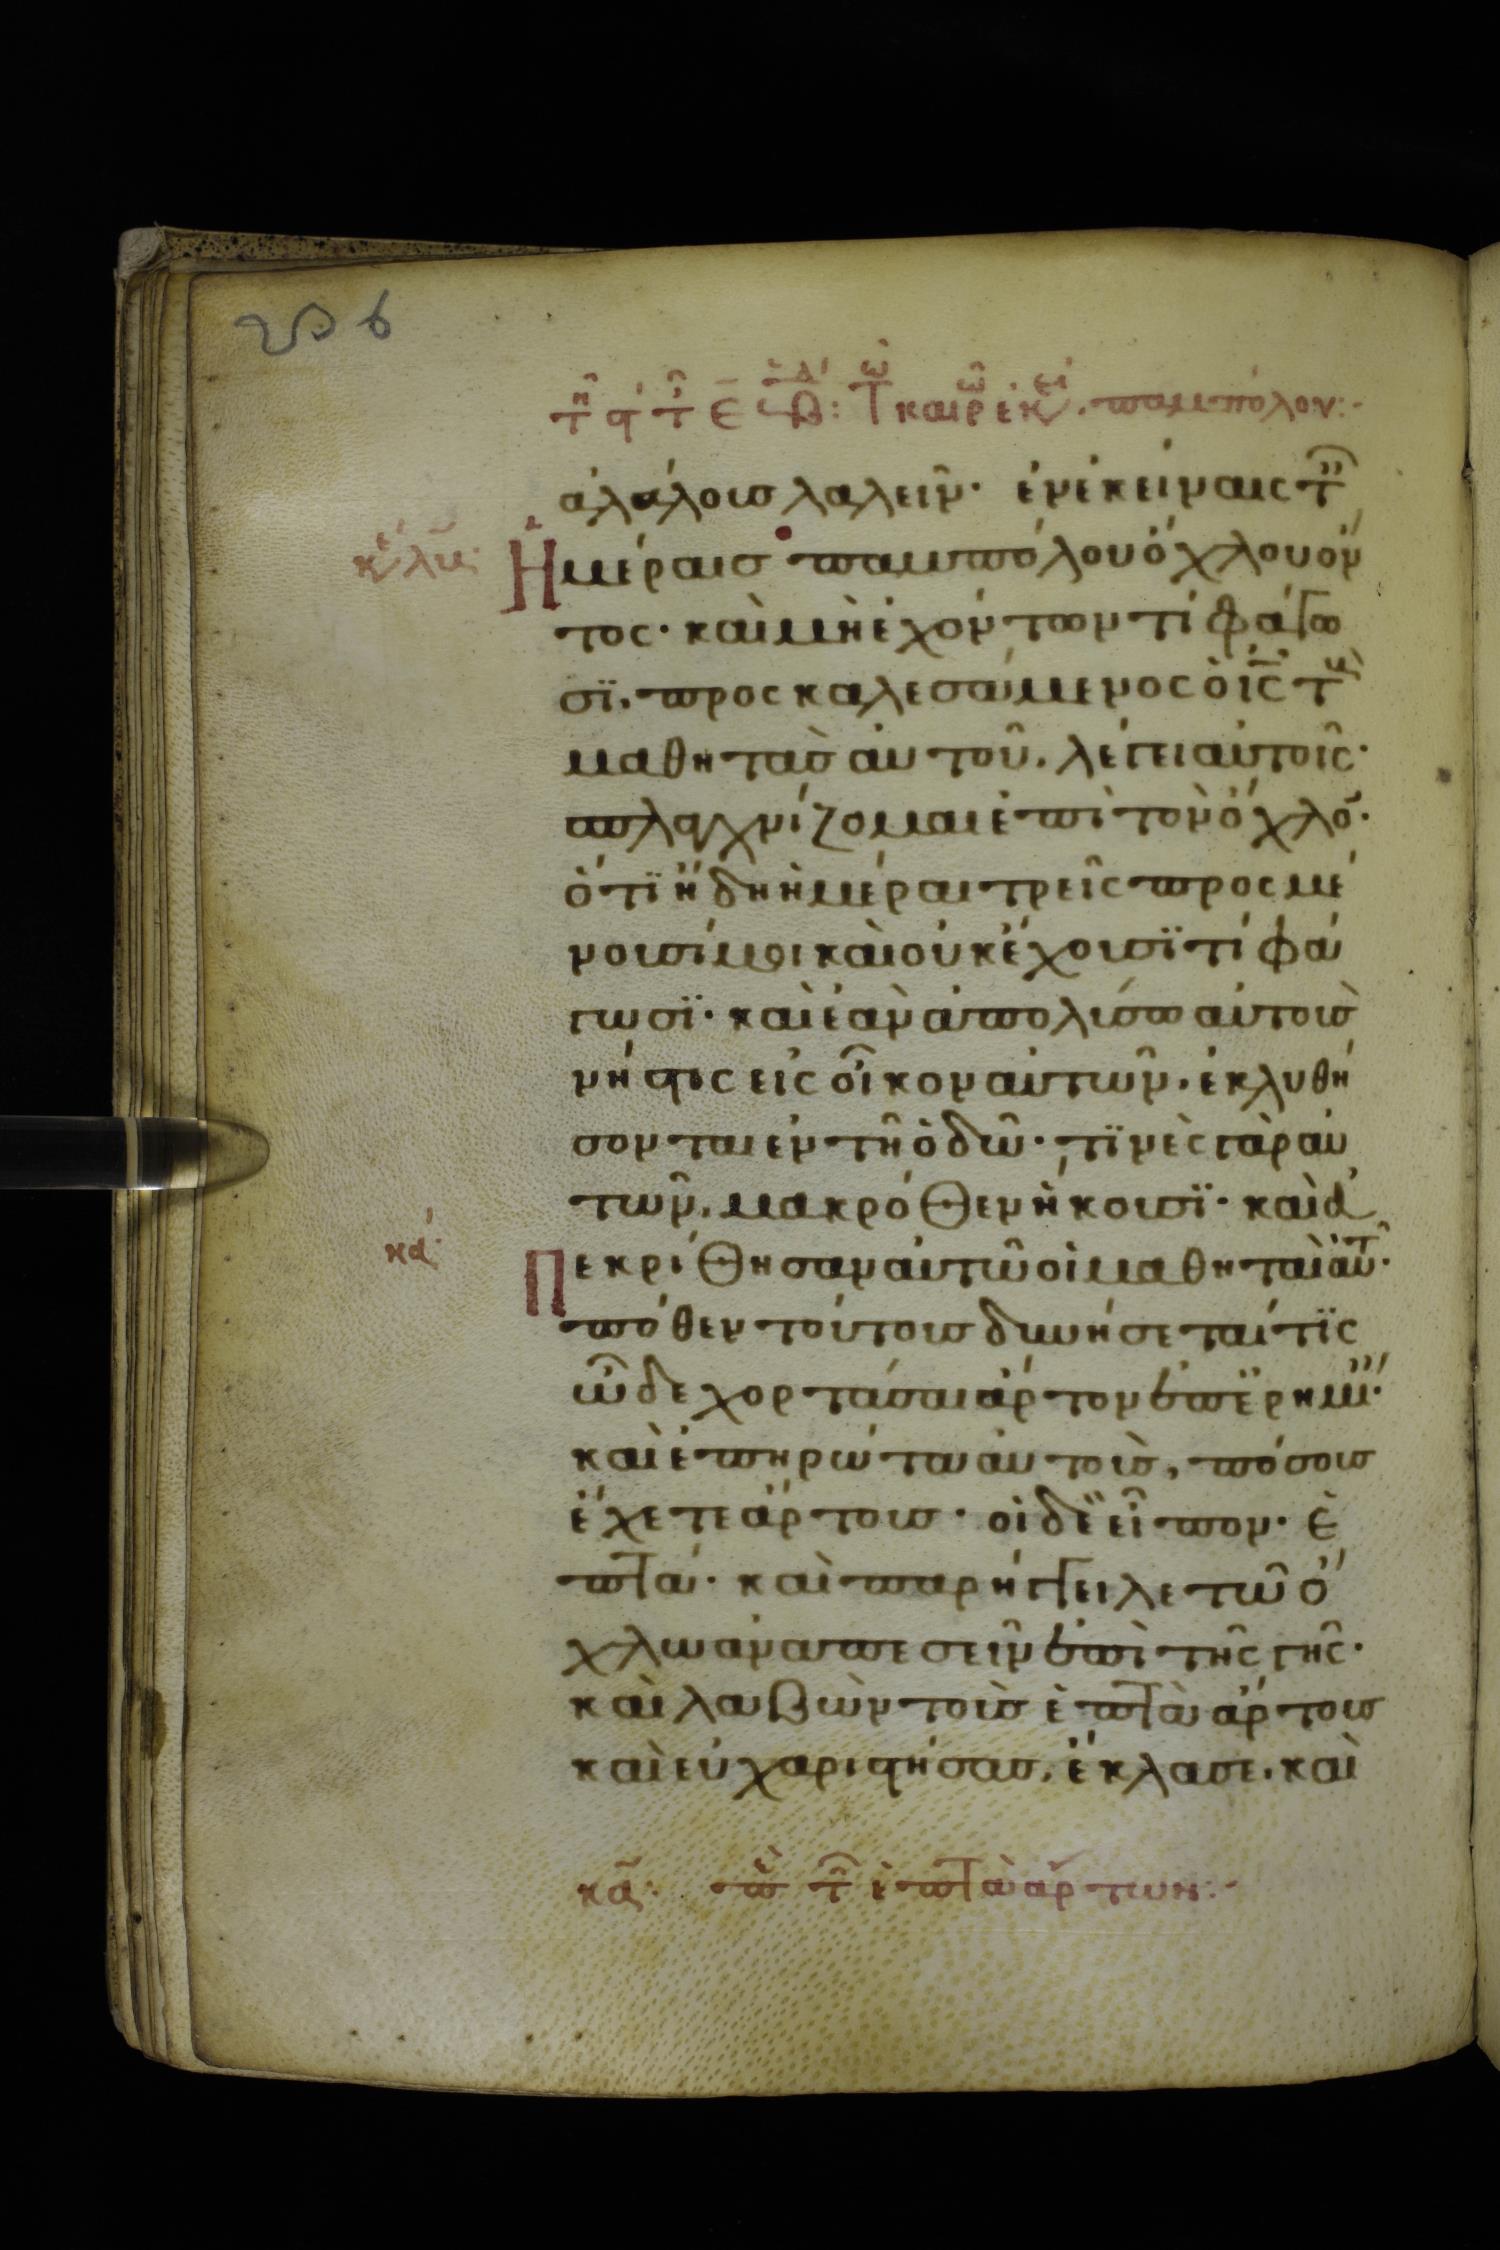 ἀλάλους λαλεῖν· ἐν ἐκείναις τ
Ἡμέραις παμπόλου ὄχλου ὄν
τος· καὶ μὴ ἐχόντων τί φάγω
σϊ, προςκαλεσάμενος ὁ ις τ
μαθητὰς αὐτοῦ, λέγει αὐτοῖς·
σπλαχνίζομαι ἐπὶ τὸν ὄχλο·
ὅτϊ ἤδη ἡμέραι τρεῖς προςμέ
νουσί μοι καὶ οὐκ ἔχουσϊ τί φά
γωσϊ· καὶ ἐὰν ἀπολύσω αὐτοὺς
νήστις εἰς οἶκον αὐτῶν, ἐκλυθή
σονται ἐν τῆ ὁδῶ· τϊνὲς γὰρ αὐ
τῶν, μακρόθεν ἥκουσϊ· καὶ ἀ
Πεκρίθησαν αὐτῶ οἱ μαθηταὶ αὐτ·
πόθεν τούτους δυνήσεταί τϊς
ὧδε χορτάσαι ἄρτον ἐπ ἐρημί·
καὶ ἐπηρώτα αὐτοὺς, πόσους
ἔχετε ἄρτους· οἱ δὲ εἶπον· ἑ
πτά· καὶ παρήγγειλε τῶ ὄ
χλω ἀναπεσεῖν ἐπὶ τῆς γῆς·
καὶ λαβὼν τοὺς ἑπτὰ ἄρτους
καὶ εὐχαριστήσας, ἔκλασε, καὶ
κα· π τ ἑπτὰ ἄρτων: